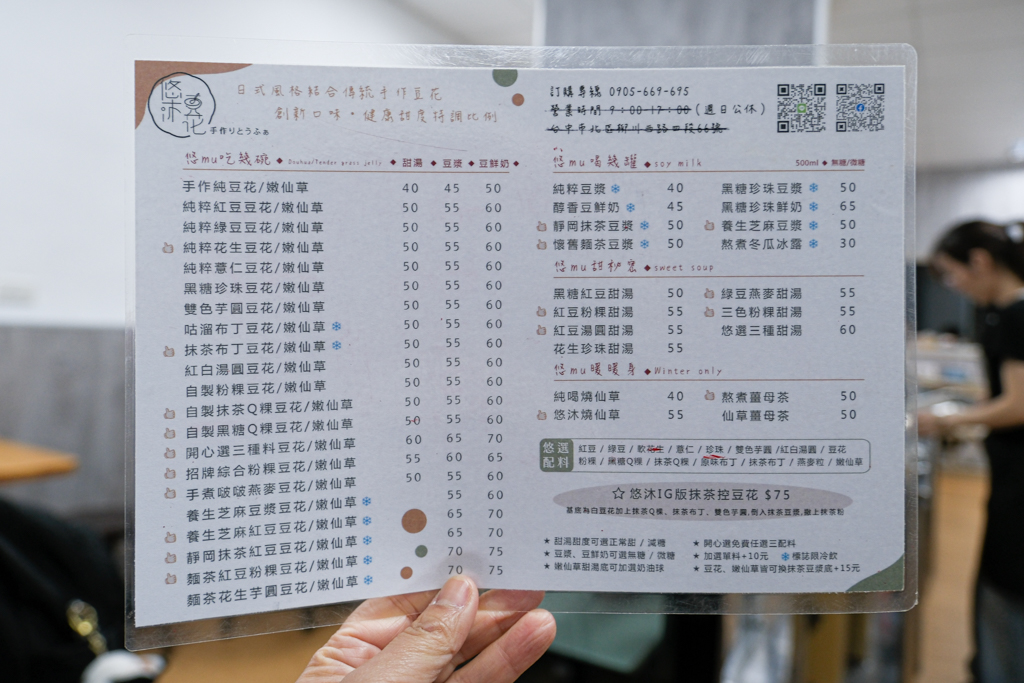 悠沐豆花
手作りとうふぁ
日式風格結合傳統手作豆花
創新口味。健康甜度特調比例
悠mu吃幾碗 ◆ Douhua/Tender grass jelly ◆ 甜湯 ◆ 豆漿 ◆ 豆鮮奶 ◆
手作純豆花/嫩仙草 40 45 50
純粹紅豆豆花/嫩仙草 50 55 60
純粹綠豆豆花/嫩仙草 50 55 60
純粹花生豆花/嫩仙草 50 55 60
純粹薏仁豆花/嫩仙草 50 55 60
黑糖珍珠豆花/嫩仙草 50 55 60
雙色芋圓豆花/嫩仙草 50 55 60
咕溜布丁豆花/嫩仙草 50 55 60
抹茶布丁豆花/嫩仙草 50 55 60
紅白湯圓豆花/嫩仙草 50 55 60
自製粉粿豆花/嫩仙草 50 55 60
自製抹茶Q粿豆花/嫩仙草 50 55 60
自製黑糖Q粿豆花/嫩仙草 50 55 60
開心選三種料豆花/嫩仙草 60 65 70
招牌綜合粉粿豆花/嫩仙草 55 60 65
手煮啵啵燕麥豆花/嫩仙草 50 55 60
養生芝麻豆漿豆花/嫩仙草 55 60
養生芝麻紅豆豆花/嫩仙草 65 70
靜岡抹茶紅豆豆花/嫩仙草 65 70
麵茶紅豆粉粿豆花/嫩仙草 70 75
麵茶花生芋圓豆花/嫩仙草 70 75
訂購專線 0905-669-695
營業時間 9:00-17:00 (週日公休)
台中市北區柳川西路四段66號
悠mu喝幾罐 ◆ soy milk 500ml ◆ 無糖/微糖
純粹豆漿 40 黑糖珍珠豆漿 50
醇香豆鮮奶 45 黑糖珍珠鮮奶 65
靜岡抹茶豆漿 50 養生芝麻豆漿 50
懷舊麵茶豆漿 50 熬煮冬瓜冰露 30
悠mu甜秘密 ◆ sweet soup
黑糖紅豆甜湯 50 綠豆燕麥甜湯 55
紅豆粉粿甜湯 55 三色粉粿甜湯 55
紅豆湯圓甜湯 55 悠選三種甜湯 60
花生珍珠甜湯 55
悠mu暖暖身 ◆ Winter only
純喝燒仙草 40 熬煮薑母茶 50
悠沐燒仙草 55 仙草薑母茶 50
悠選配料
紅豆 / 綠豆 / 軟花生 / 薏仁 / 珍珠 / 雙色芋圓 / 紅白湯圓 / 豆花
粉粿 / 黑糖Q粿 / 抹茶Q粿 / 原味布丁 / 抹茶布丁 / 燕麥粒 / 嫩仙草
☆ 悠沐IG版抹茶控豆花 $75
基底為白豆花加上抹茶Q粿、抹茶布丁、雙色芋圓,倒入抹茶豆漿,撒上抹茶粉
★ 甜湯甜度可選正常甜 / 減糖 ★ 開心選免費任選三配料
★ 豆漿、豆鮮奶可選無糖 / 微糖 ★ 加選單料+10元 標誌限冷飲
★ 嫩仙草甜湯底可加選奶油球 ★ 豆花、嫩仙草皆可換抹茶豆漿底+15元